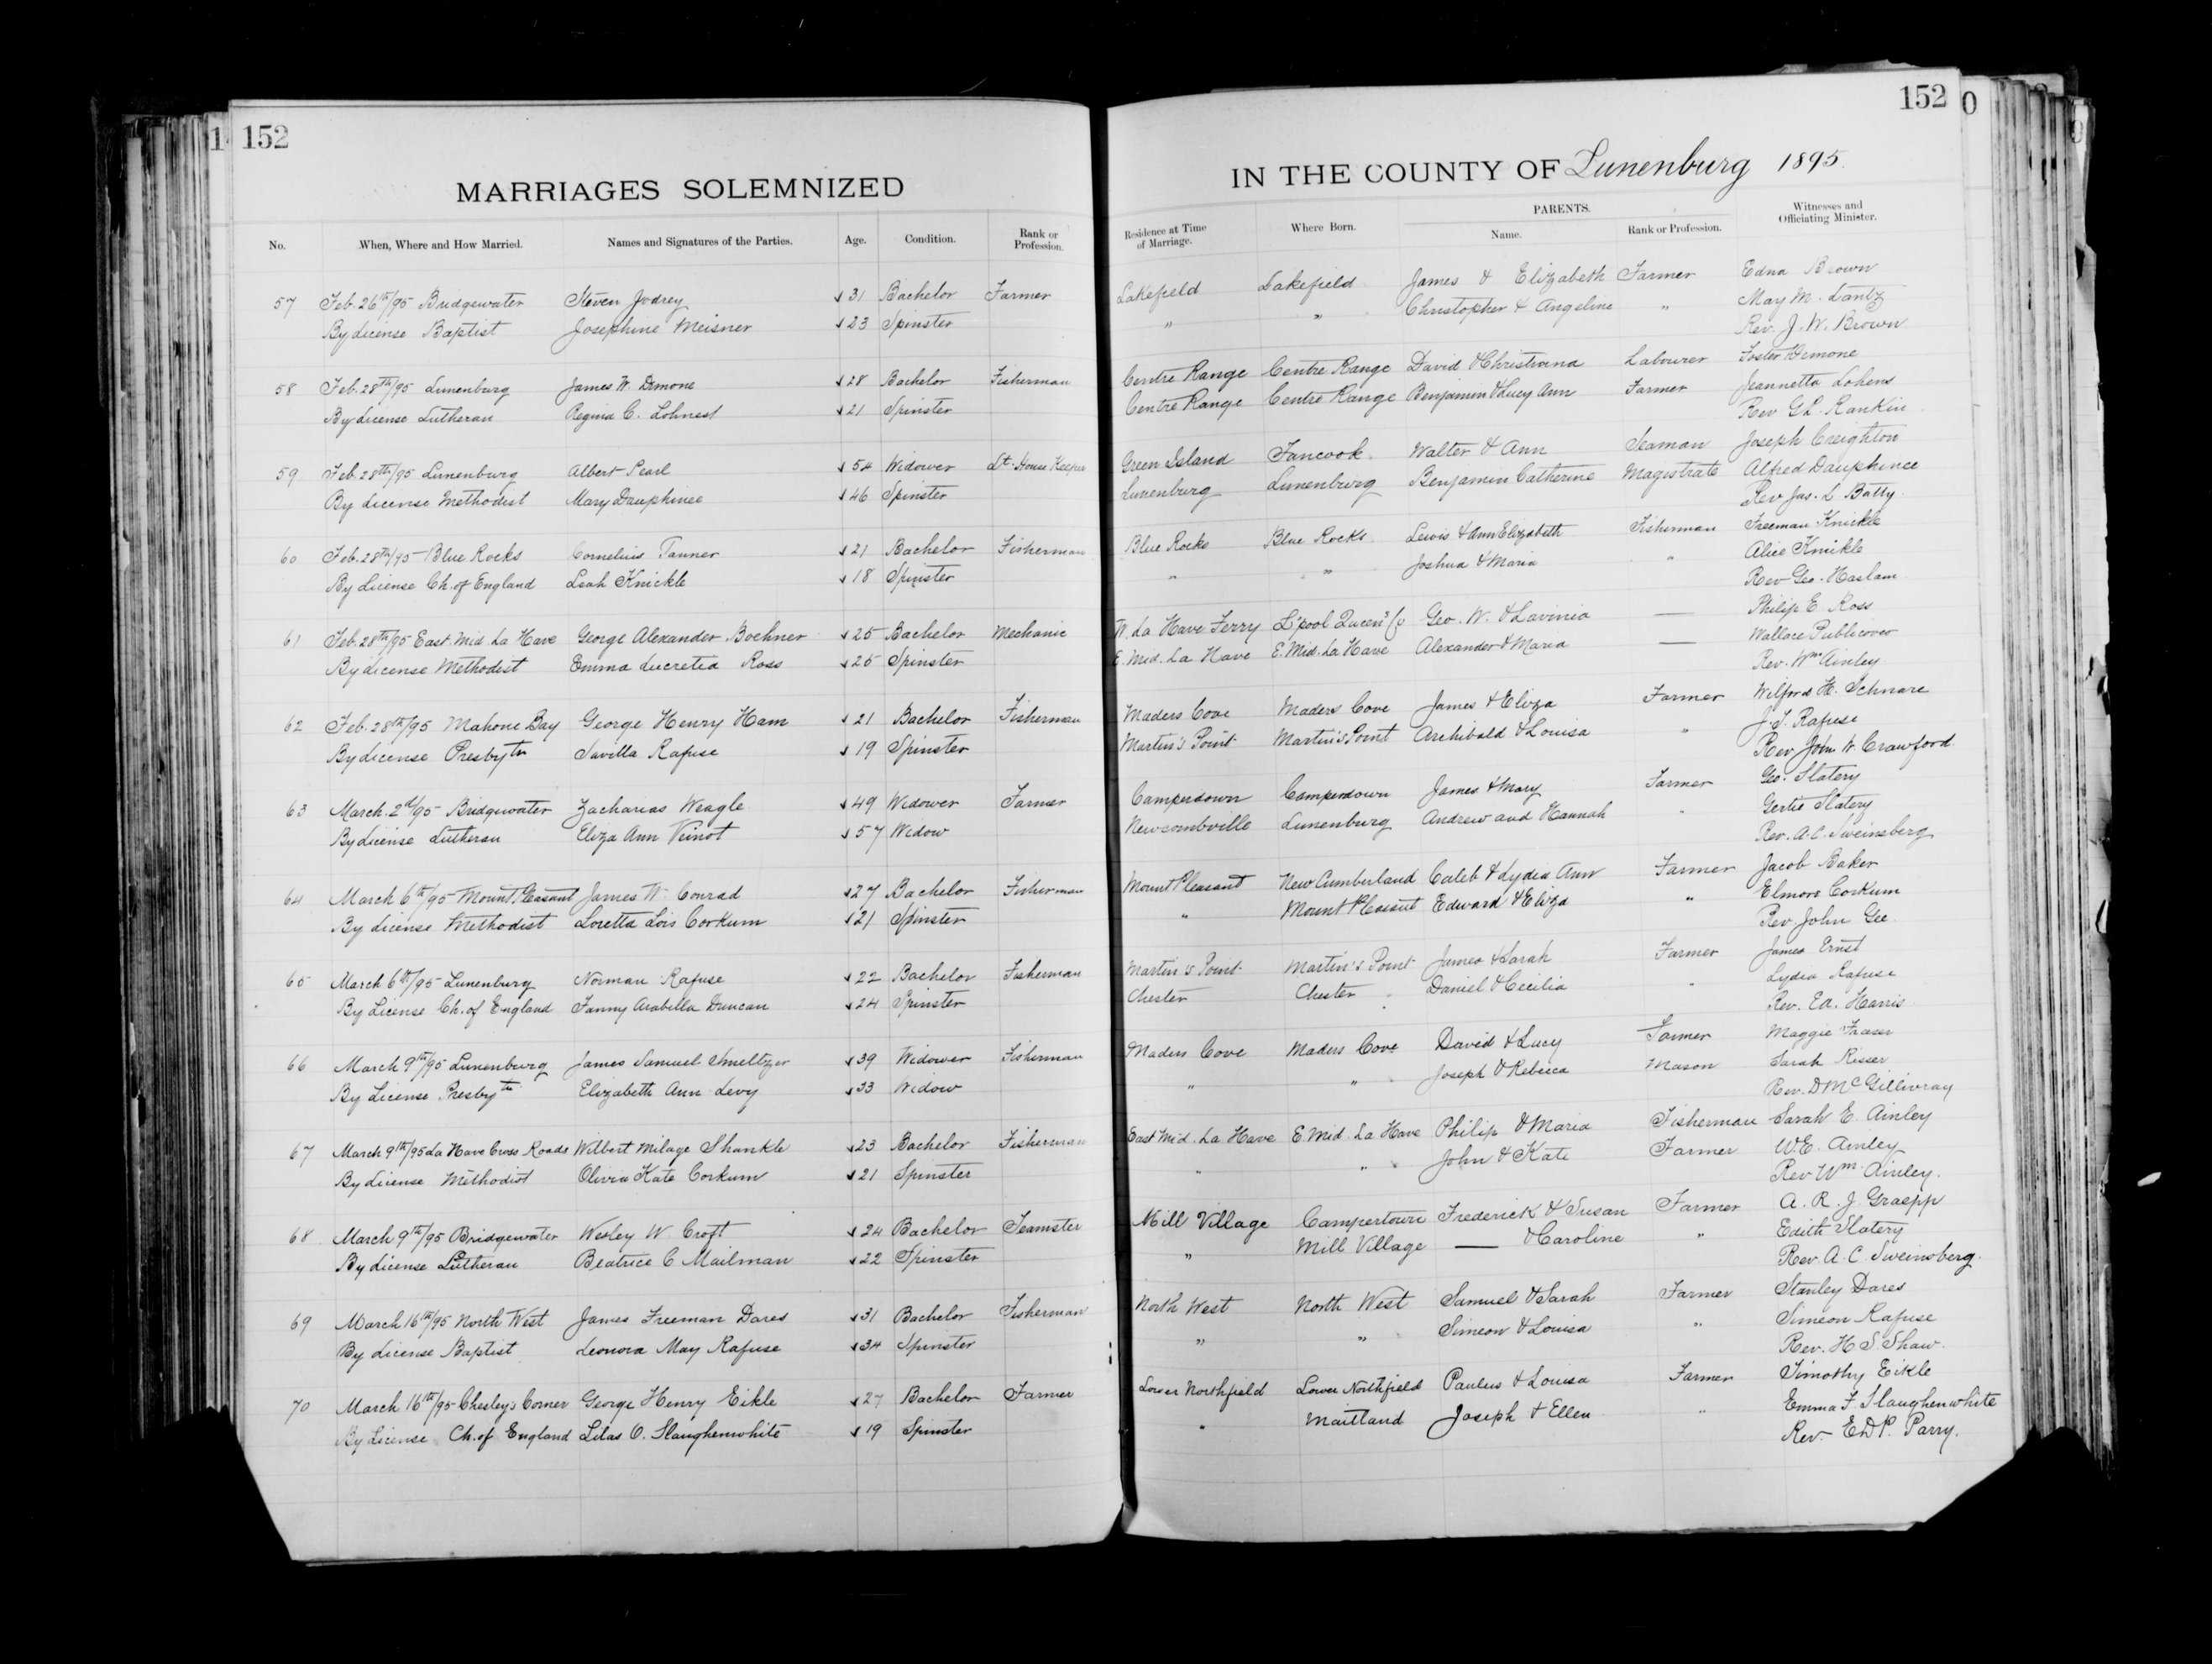 152
MARRIAGES SOLEMNIZED
No. When, Where and How Married. Names and Signatures of the Parties. Age. Condition. Rank or Profession.
57 Feb. 26th/95 Bridgewater Steven Jodrey 31 Bachelor Farmer
By License Baptist Josephine Meisner 23 Spinster
58 Feb. 28th/95 Lunenburg James W. Demone 28 Bachelor Fisherman
By License Lutheran Regina C. Lohnest 21 Spinster
59 Feb. 28th/95 Lunenburg Albert Pearl 54 Widower Lt. House Keeper
By License Methodist Mary Dauphinee 46 Spinster
60 Feb. 28th/95 Blue Rocks Cornelius Tanner 21 Bachelor Fisherman
By License Ch. of England Leah Knickle 18 Spinster
61 Feb. 28th/95 East Mid. La Have George Alexander Boehner 25 Bachelor Mechanic
By License Methodist Emma Lucretia Ross 25 Spinster
62 Feb. 28th/95 Mahone Bay George Henry Ham 21 Bachelor Fisherman
By License Presbytn Savilla Rafuse 19 Spinster
63 March. 2d/95 Bridgewater Zacharias Weagle 49 Widower Farmer
By License Lutheran Eliza Ann Veinot 57 Widow
64 March 6th/95 Mount Pleasant James W. Conrad 27 Bachelor Fisherman
By License Methodist Loretta Lois Corkum 21 Spinster
65 March 6th/95 Lunenburg Norman Rafuse 22 Bachelor Fisherman
By License Ch. of England Fanny Arabella Duncan 24 Spinster
66 March 9th/95 Lunenburg James Samuel Smeltzer 39 Widower Fisherman
By License Presbytn Elizabeth Ann Levy 33 Widow
67 March 9th/95 La Have Cross Roads Wilbert Milage Shankle 23 Bachelor Fisherman
By License Methodist Olivia Kate Corkum 21 Spinster
68 March 9th/95 Bridgewater Wesley W Croft 24 Bachelor Teamster
By License Lutheran Beatrice C Mailman 22 Spinster
69 March 16th/95 North West James Freeman Dares 31 Bachelor Fisherman
By License Baptist Leonora May Rafuse 34 Spinster
70 March 16th/95 Chesley's Corner George Henry Eikle 27 Bachelor Farmer
By License Ch. of England Lilas O. Slaughenwhite 19 Spinster
152
IN THE COUNTY OF Lunenburg 1895.
Residence at Time of Marriage. Where Born. PARENTS. Name. Rank or Profession. Witnesses and Officiating Minister.
Lakefield Lakefield James & Elizabeth Farmer Edna Brown
" " Christopher & Angeline " May M. Lantz
Rev. J. W. Brown
Centre Range Centre Range David & Christiana Labourer Foster Demone
Centre Range Centre Range Benjamin & Lucy Ann Farmer Jeannetta Lohens
Rev G L. Rankin
Green Island Tancook Walter & Ann Seaman Joseph Creighton
Lunenburg Lunenburg Benjamin Catherine Magistrate Alfred Dauphinee
Rev Jas. L Batty
Blue Rocks Blue Rocks Lewis & Ann Elizabeth Fisherman Freeman Knickle
" " Joshua & Maria " Alice Knickle
Rev Geo. Haslam
W. La Have Ferry L'pool Queen's Co Geo. W. & Lavinia — Philip E. Ross
E. Mid. La Have E. Mid. La Have Alexander & Maria — Wallace Publicover
Rev. Wm Ainley
Maders Cove Maders Cove James & Eliza Farmer Wilfred H. Schnare
Martin's Point Martin's Point Archibald & Louisa " J. S. Rafuse
Rev John W. Crawford
Camperdown Camperdown James & Mary Farmer Geo. Slatery
Newcombville Lunenburg Andrew and Hannah " Gertie Slatery
Rev. A. C. Sweinsberg
Mount Pleasant New Cumberland Caleb & Lydia Ann Farmer Jacob Baker
" Mount Pleasant Edward & Eliza " Elmore Corkum
Rev John Gee
Martin's Point Martin's Point James & Sarah Farmer James Ernst
Chester Chester Daniel & Cecilia " Lydia Rafuse
Rev. Ed. Harris
Maders Cove Maders Cove David & Lucy Farmer Maggie Fraser
" " Joseph & Rebecca Mason Sarah Risser
Rev. D McGillivray
East Mid. La Have E. Mid. La Have Philip & Maria Fisherman Sarah E. Ainley
" " John & Kate Farmer W. E. Ainley
Rev Wm. Ainley.
Mill Village Campertown Frederick & Susan Farmer A. R. J. Graepp
" Mill Village — & Caroline " Edith Slatery
Rev. A. C. Sweinsberg.
North West North West Samuel & Sarah Farmer Stanley Dares
" " Simeon & Louisa " Simeon Rafuse
Rev. H. S. Shaw.
Lower Northfield Lower Northfield Paulus & Louisa Farmer Timothy Eikle
" Maitland Joseph & Ellen " Emma F. Slaughenwhite
Rev. E D P. Parry.